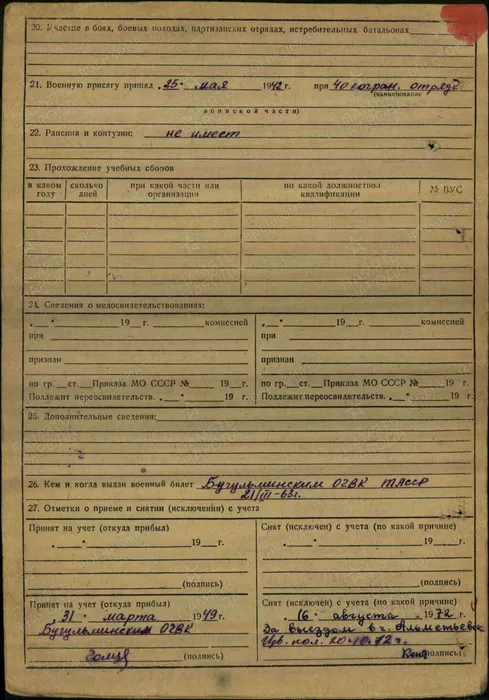 20. Участие в боях, боевых походах, партизанских отрядах, истребительных батальонах
21. Военную присягу принял „25“ мая 1942 г. при 40 погран. отряде
(наименование
воинской части)
22. Ранения и контузии: не имеет
23. Прохождение учебных сборов
в каком году | сколько дней | при какой части или организации | по какой должностной квалификации | № ВУС
24. Сведения о медосвидетельствованиях:
„__“ 19__г. комиссией
при
признан
по гр.__ст.__Приказа МО СССР №__ 19__г.
Подлежит переосвидетельств. „__“ 19 г.
„__“ 19__г. комиссией
при
признан
по гр.__ст.__Приказа МО СССР №__ 19 г.
Подлежит переосвидетельств. „__“ 19 г.
25. Дополнительные сведения:
26. Кем и когда выдан военный билет Бугульминским ОГВК ТАССР
21/III-63г.
27. Отметки о приеме и снятии (исключении) с учета
Принят на учет (откуда прибыл)
„__“ 19__г.
(подпись)
Снят (исключен) с учета (по какой причине)
„__“ 19__г.
(подпись)
Принят на учет (откуда прибыл)
„31“ марта 1949 г.
Бугульминским ОГВК
(подпись)
Снят (исключен) с учета (по какой причине)
„16“ августа 1972 г.
За выездом в г. Альметьевск
(подпись)